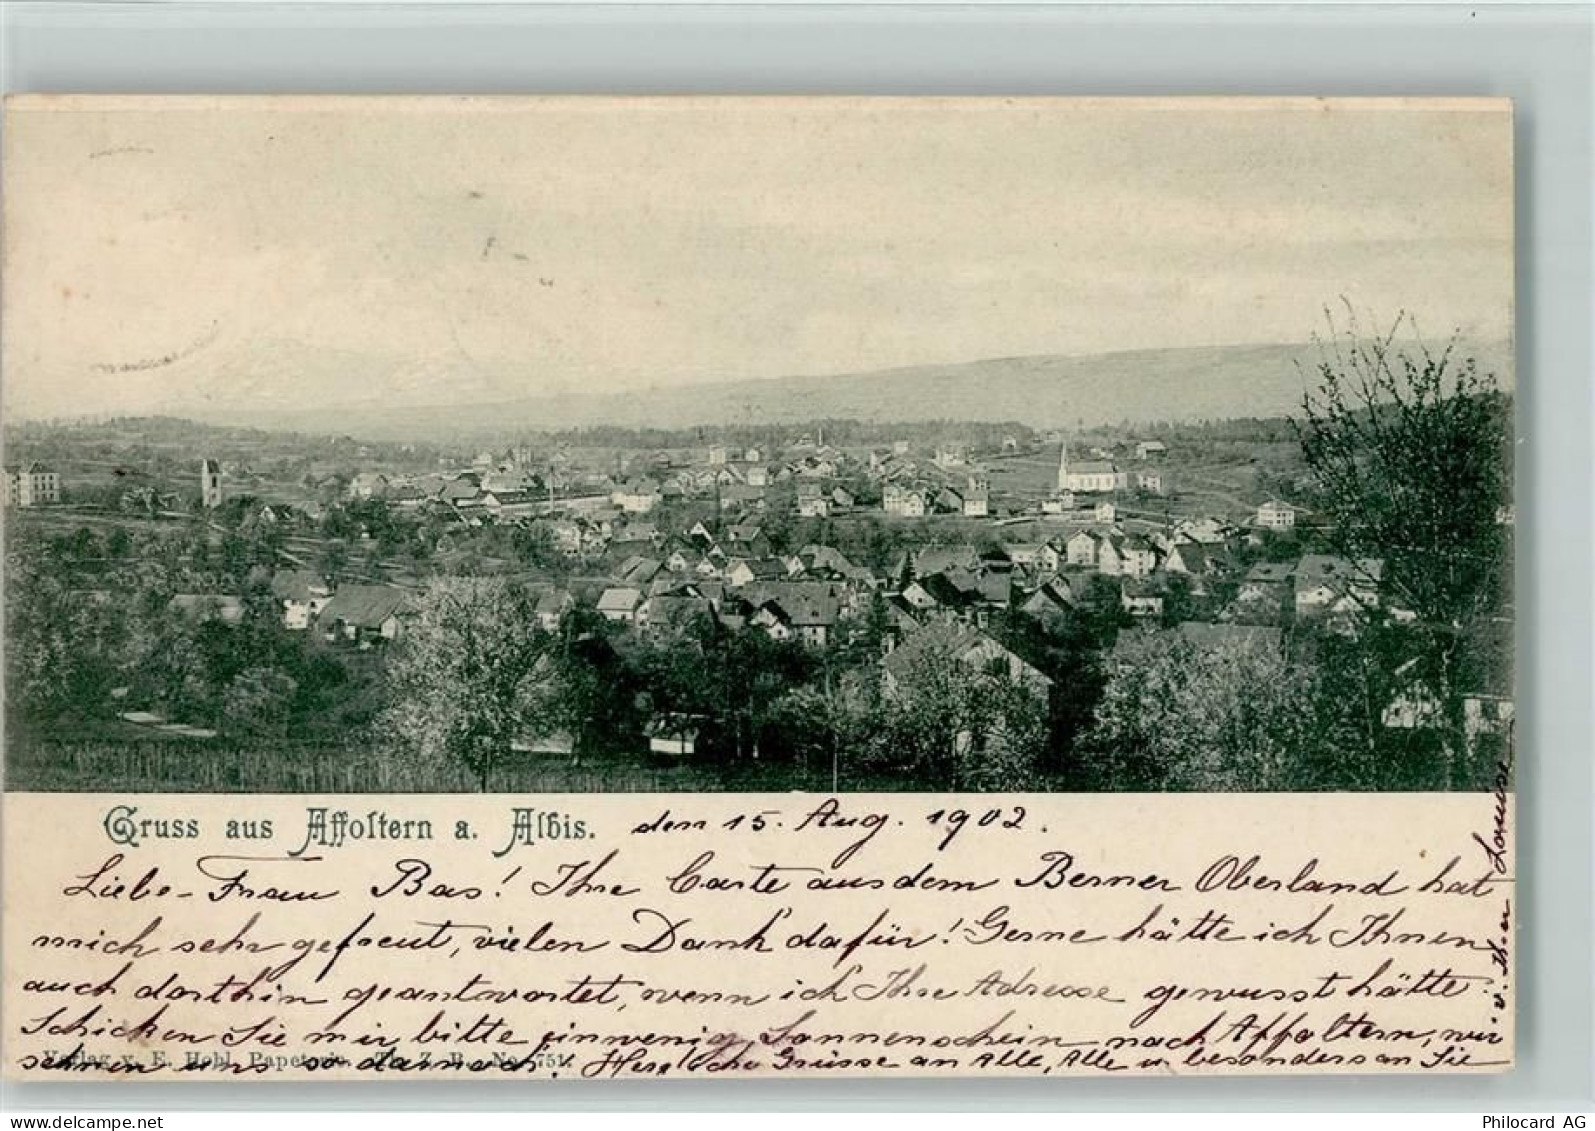 Gruss aus Affoltern a. Albis. den 15. Aug. 1902.
Liebe Frau Bas! Ihre Carte aus dem Berner Oberland hat
mich sehr gefreut, vielen Dank dafür! Gerne hätte ich Ihnen
auch dorthin geantwortet, wenn ich Ihre Adresse gewusst hätte.
Schicken Sie mir bitte ein wenig Sonnenschein nach Affoltern, wir
sehnen uns so darnach. Herzliche Grüsse an Alle, Alle u besonders an Sie
v. Ihrer Louise
Verlag v. E. Hobl, Papeterie. Th. Z. B. No. 751.
delcampe.net
Philocard AG